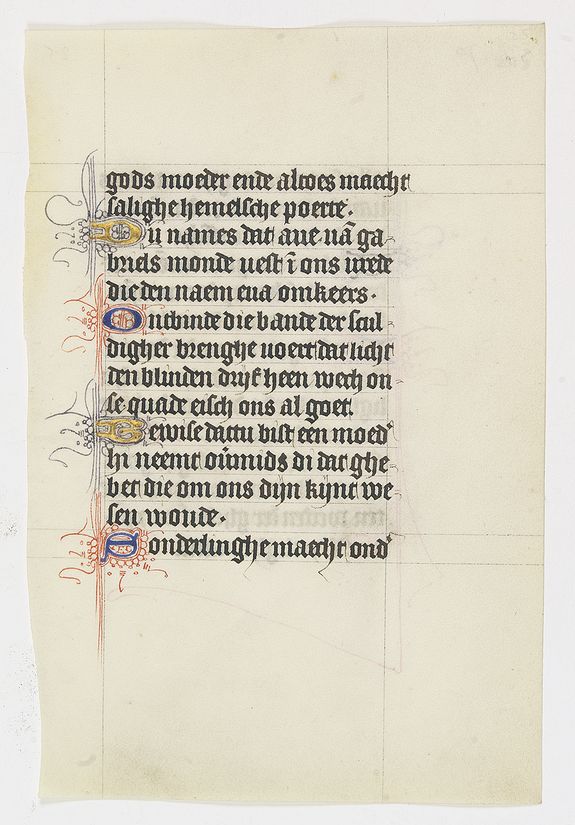 gods moeder ende altoes maecht
salighe hemelsche poerte.
Du names dat aue uā ga
briels monde uest ī ons vrede
die den naem eua omkeers.
Ontbinde die bande der scul
digher brenghe uoert dat licht
den blinden drijf heen wech on
se quade eisch ons al goet.
Bewise dattu bist een moed᾽
hi neemt oūmids di dat ghe
bet die om ons dijn kijnt we
sen woude.
Sonderlinghe maecht ond᾽